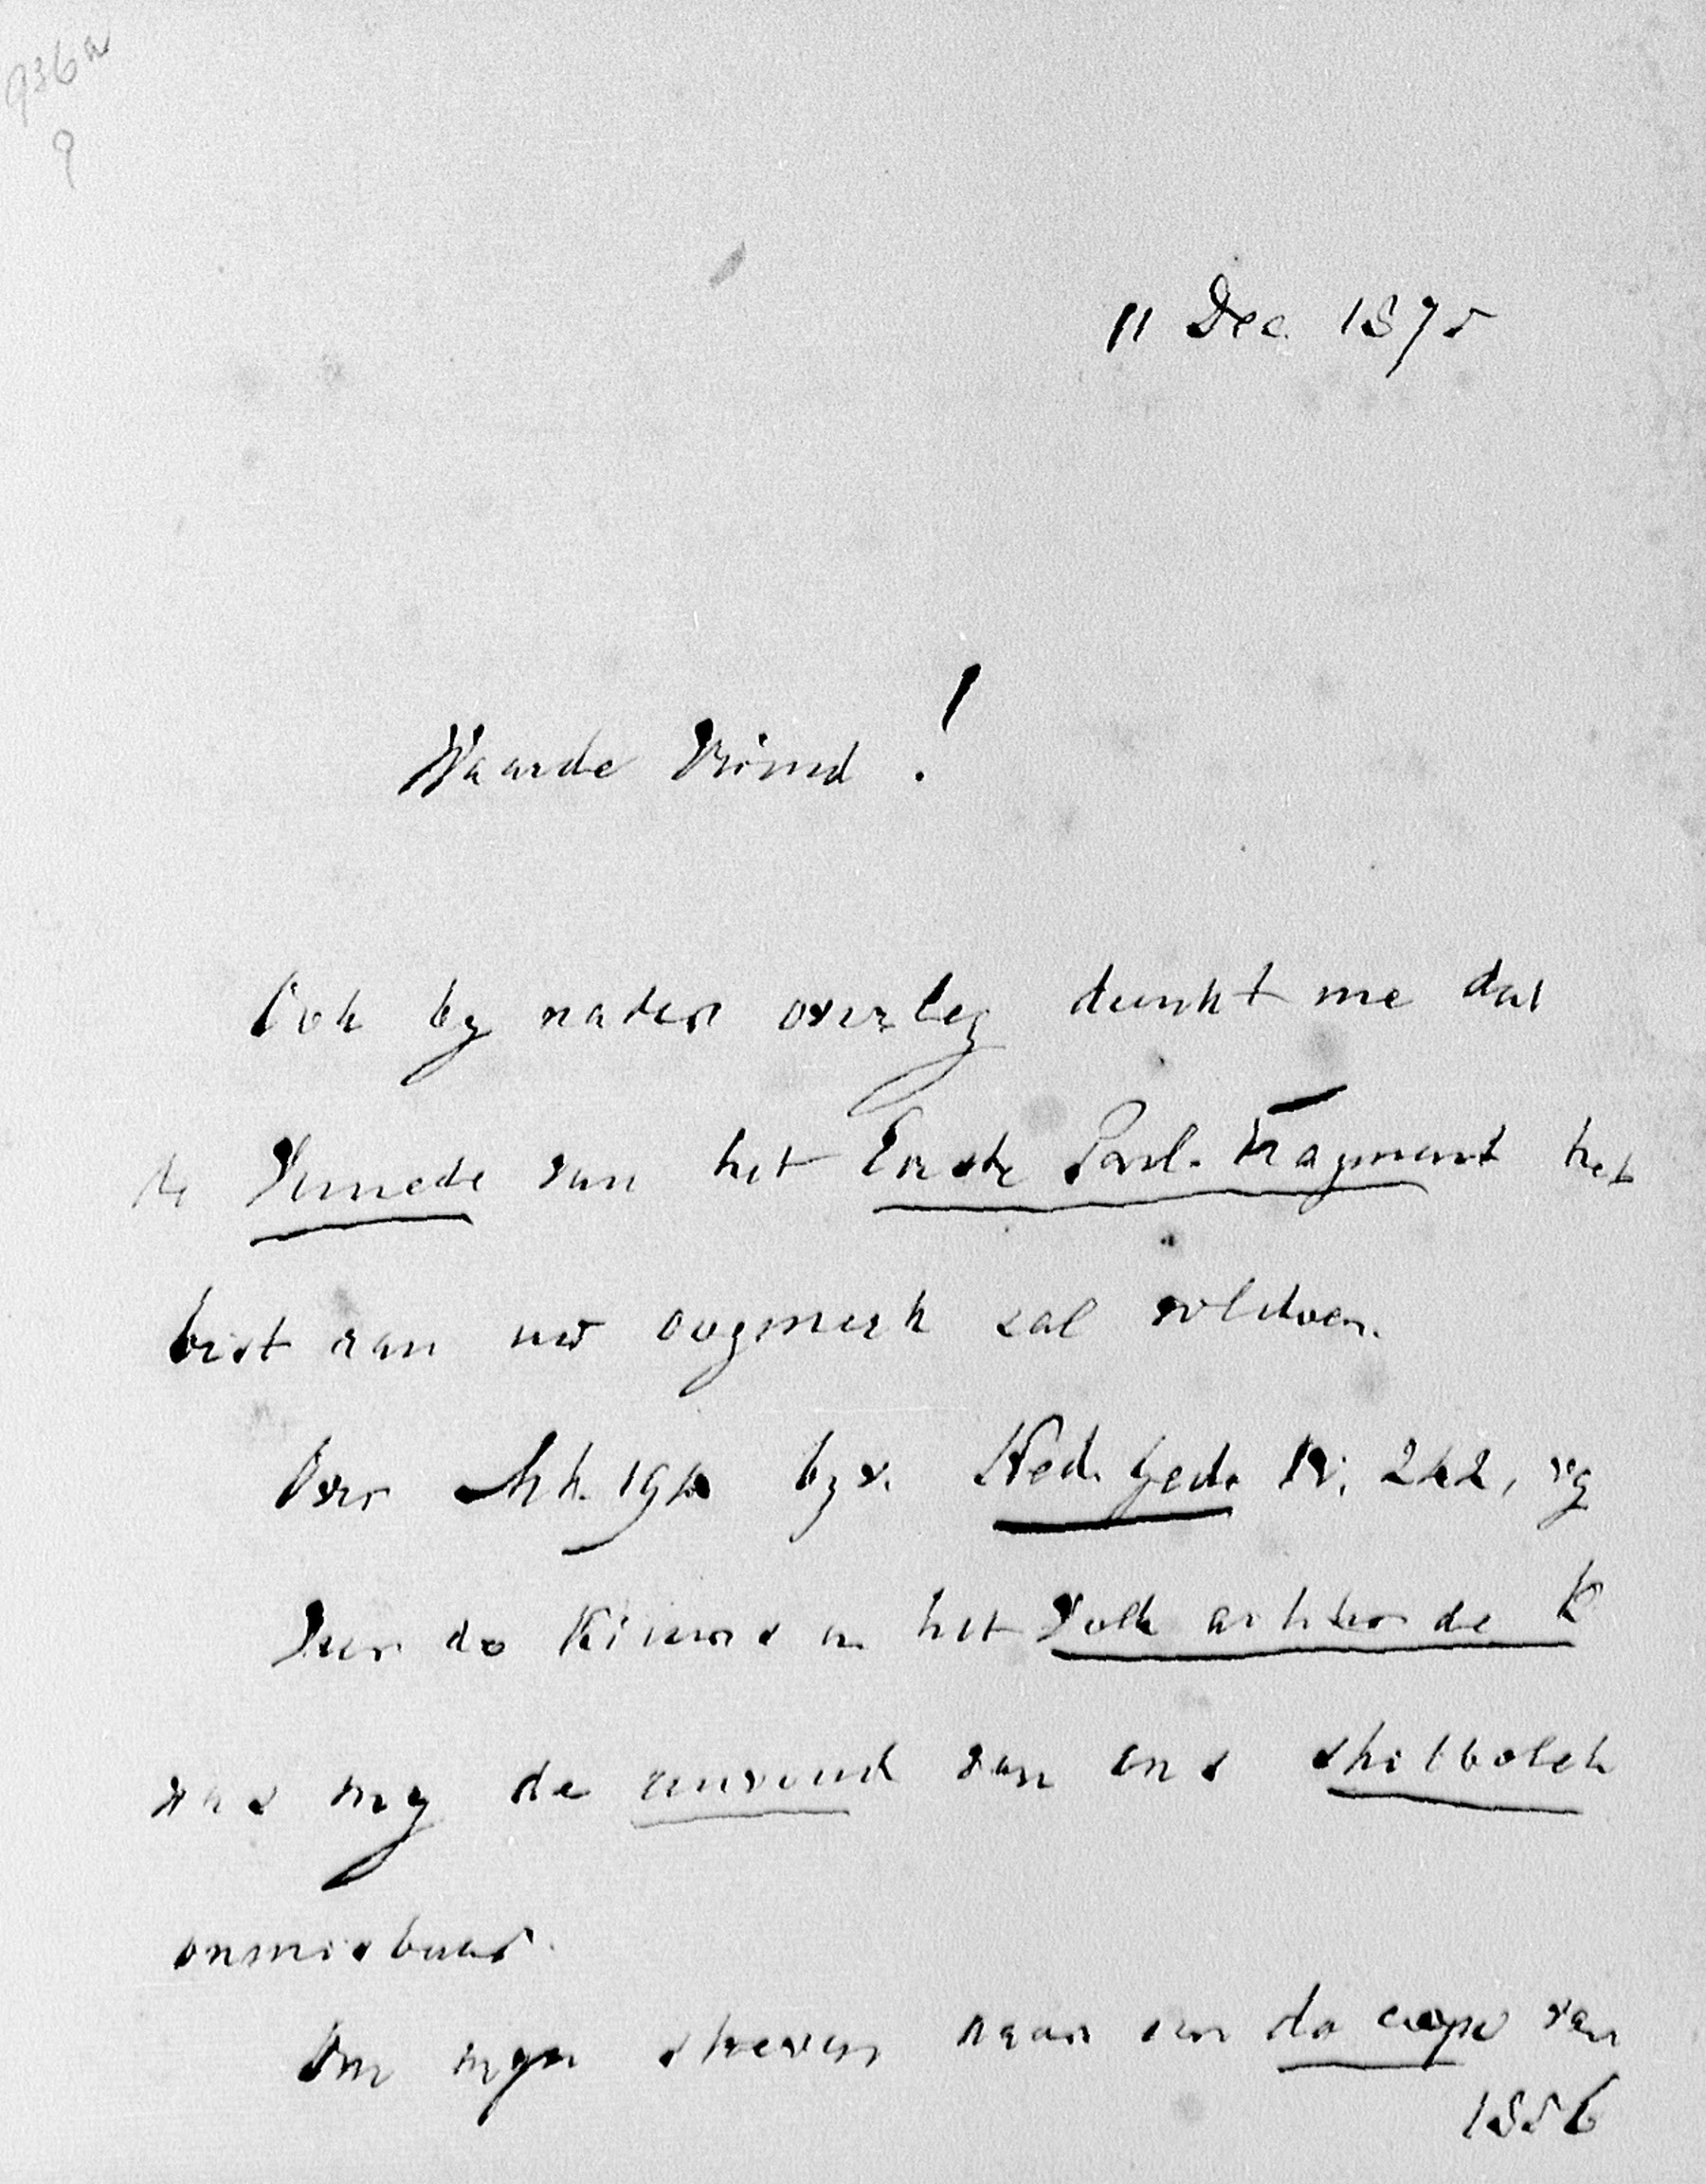 936a
9
11 Dec. 1875
Waarde Vriend!
Ook by nader overleg dunkt me dat
de Vrucht van het Eerste Parl. Fragment het
best aan uw oogmerk zal voldoen.
Over Art. 194 byv. Ned. Ged. IV, 242, vg
Voor de Kiezers en het volk achter de K
was my de eenvoud van ons shilboleth
onmisbaar.
Om myn streven naar een da capo van
1856